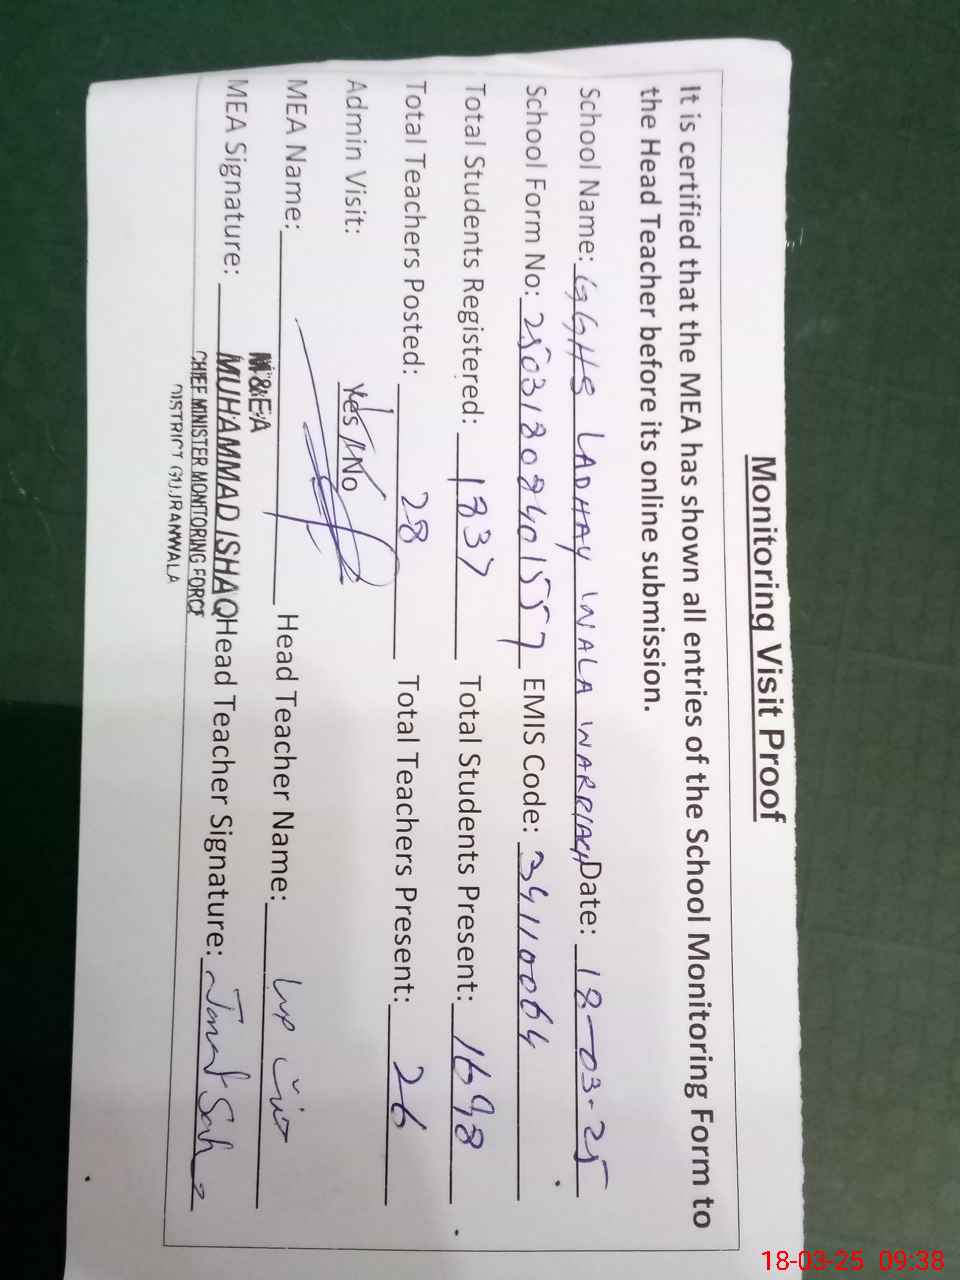 Monitoring Visit Proof
It is certified that the MEA has shown all entries of the School Monitoring Form to
the Head Teacher before its online submission.
School Name: GGHS LADHAY WALA WARRIACH Date: 18-03-25
School Form No: 25031808401557 EMIS Code: 34110064
Total Students Registered: 1837 Total Students Present: 1698
Total Teachers Posted: 28 Total Teachers Present: 26
Admin Visit: Yes / No
MEA Name: Head Teacher Name:
M&EA
MEA Signature: MUHAMMAD ISHAQ Head Teacher Signature:
CHIEF MINISTER MONITORING FORCE
DISTRICT GUJRANWALA
18-03-25 09:38